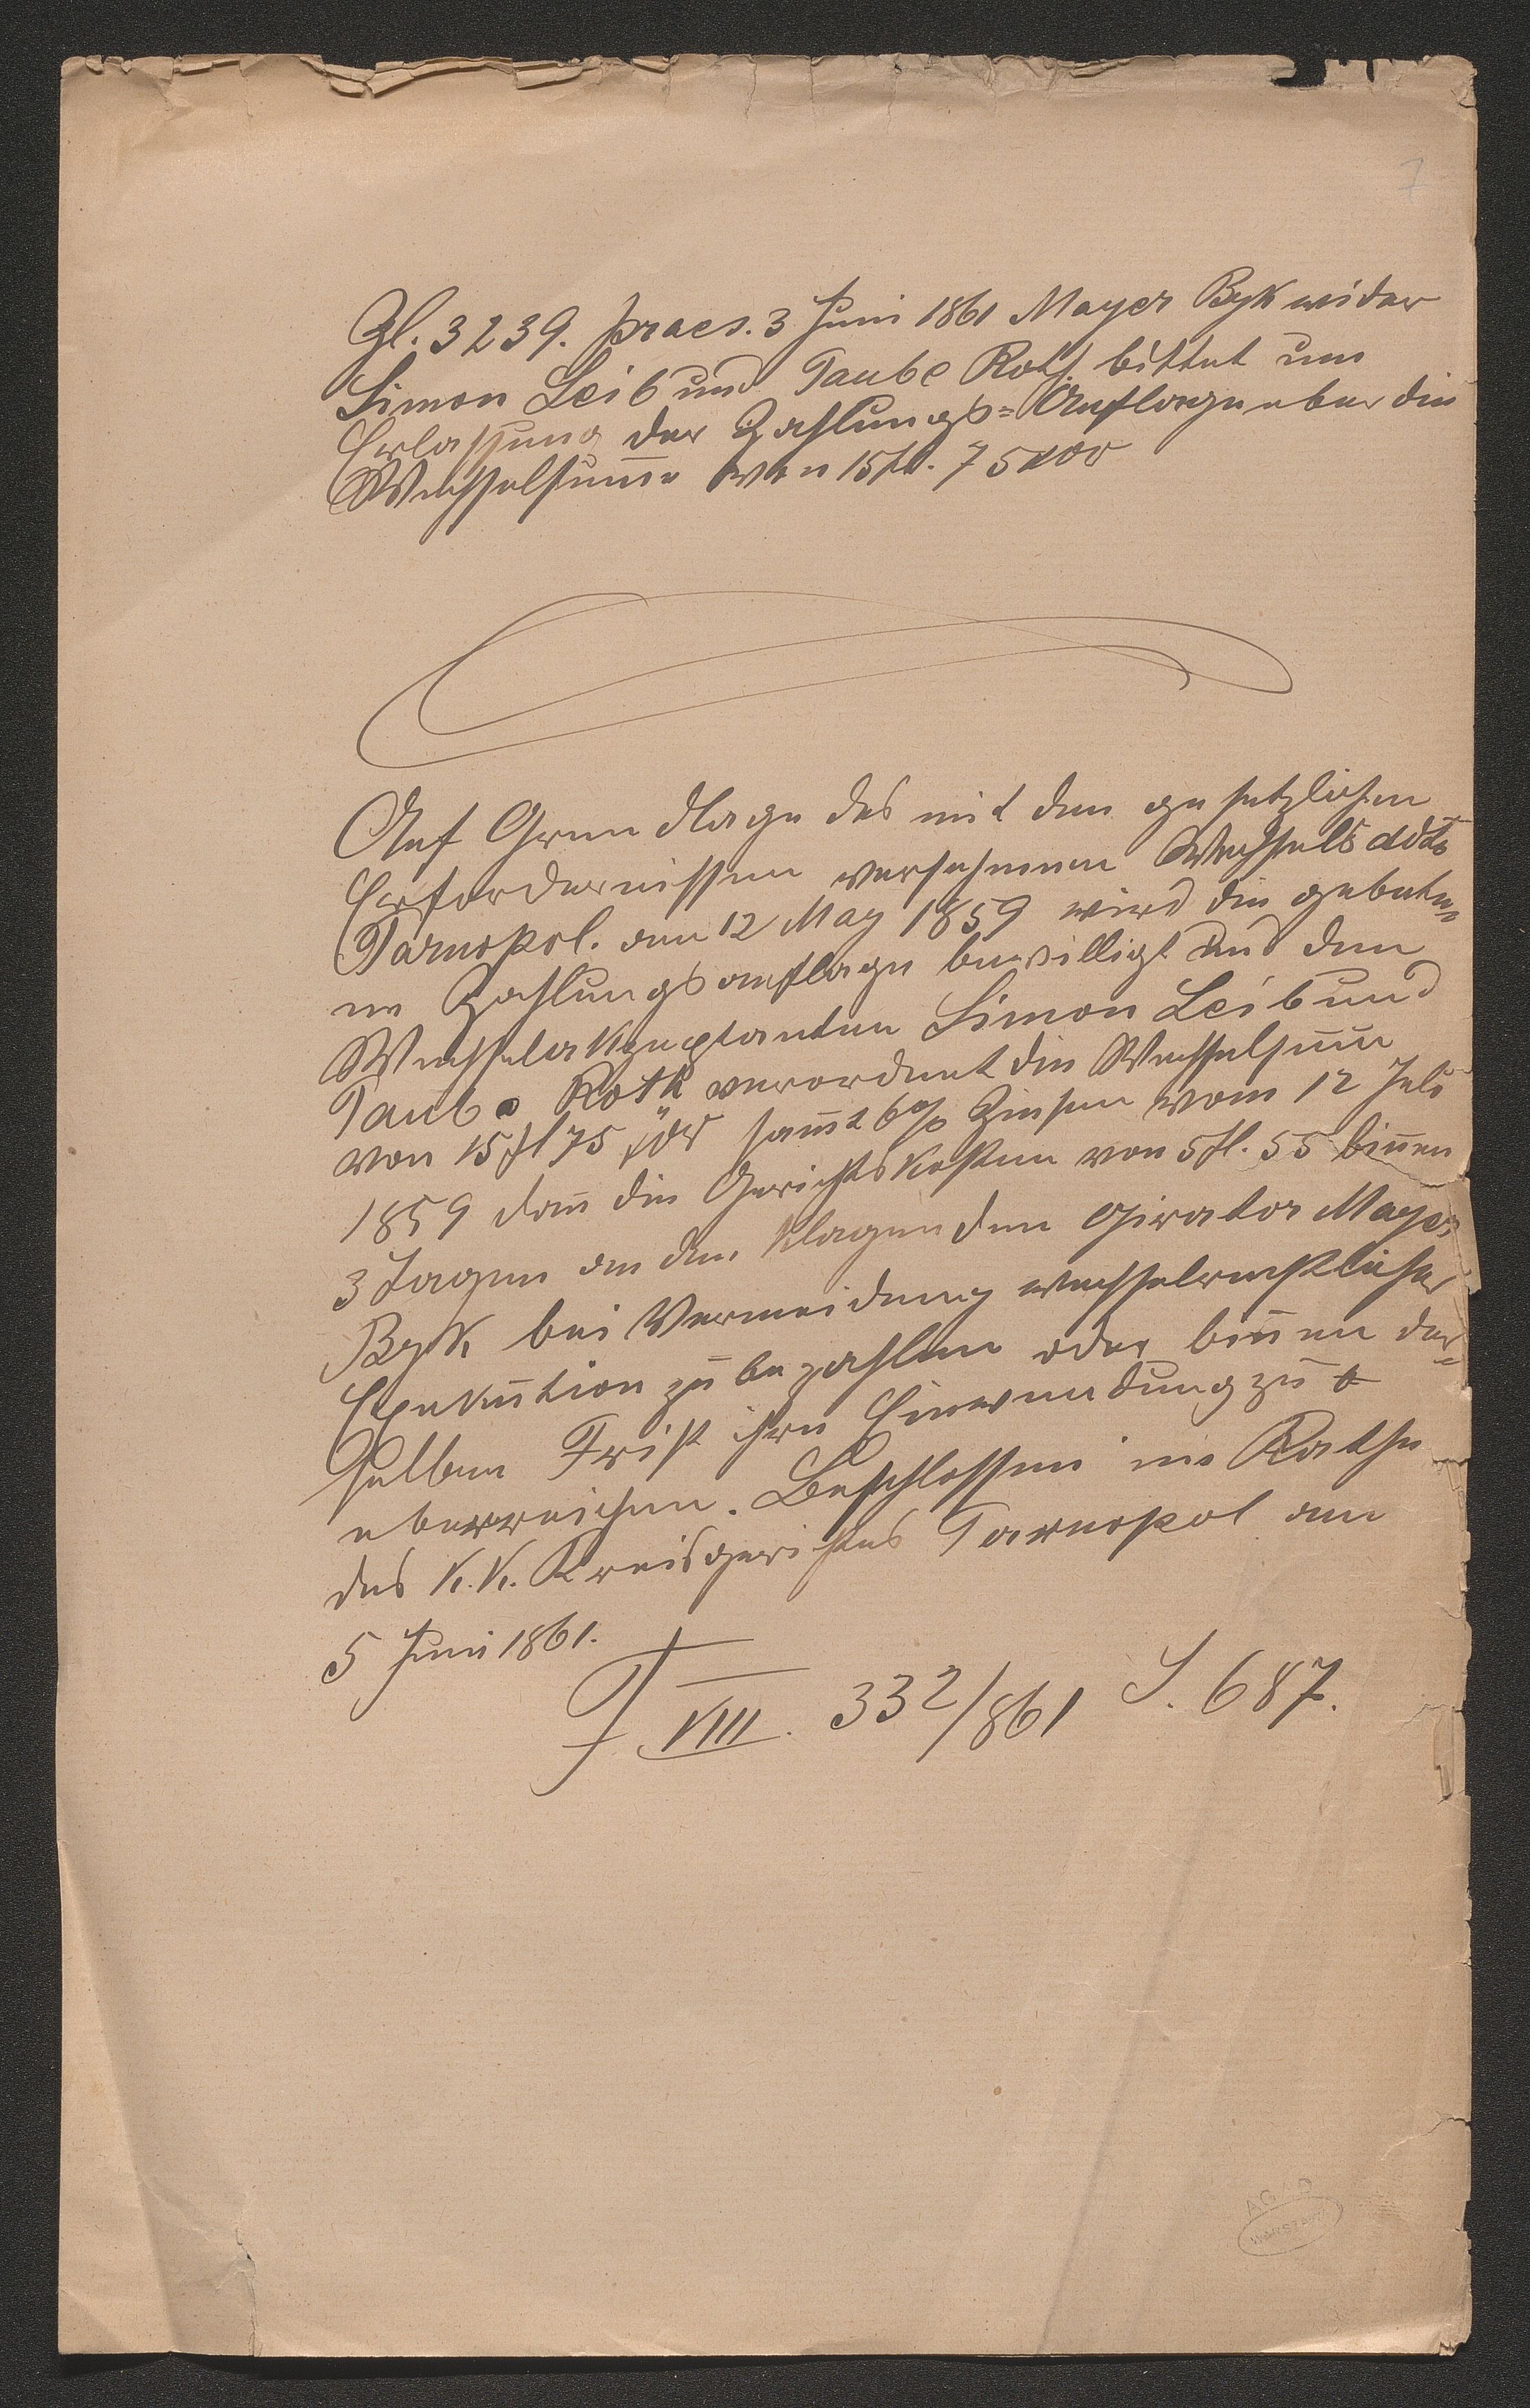 7
Zl. 3239. praes. 3 Juni 1861 Mayer Byk wider
Simon Leib und Taube Roth bittet um
Erlassung der Zahlungs=Auflage uber die
Wechselsum̄e von 15 fl. 75
Auf Grundlage des mit den gesetzlichen
Erfordernissen versehenen Wechsels ddto
Tarnopol. am 12 May 1859 wird die gebete=
ne Zahlungsauflage bewilligt und den
Wechselakzeptanten Simon Leib und
Taube Roth verordnet die Wechselsum̄e
von 15 fl 75 sam̄t 6% Zinsen vom 12 Juli
1859 dan̄ die Gerichtskosten von 5 fl. 55 bin̄en
3 Tagen an den klagenden Girator Mayer
Byk bei Vermeidung wechselrechtlicher
Exekution zu bezahlen oder bin̄en der=
selben Frist ihre Einwendung zu
uberreichen. Beschlossen im Rathe
des K. K. Kreisgerichtes Tarnopol am
5 Juni 1861.
F VIII. 332/861 S. 687.
AGAD
WARSZAWA